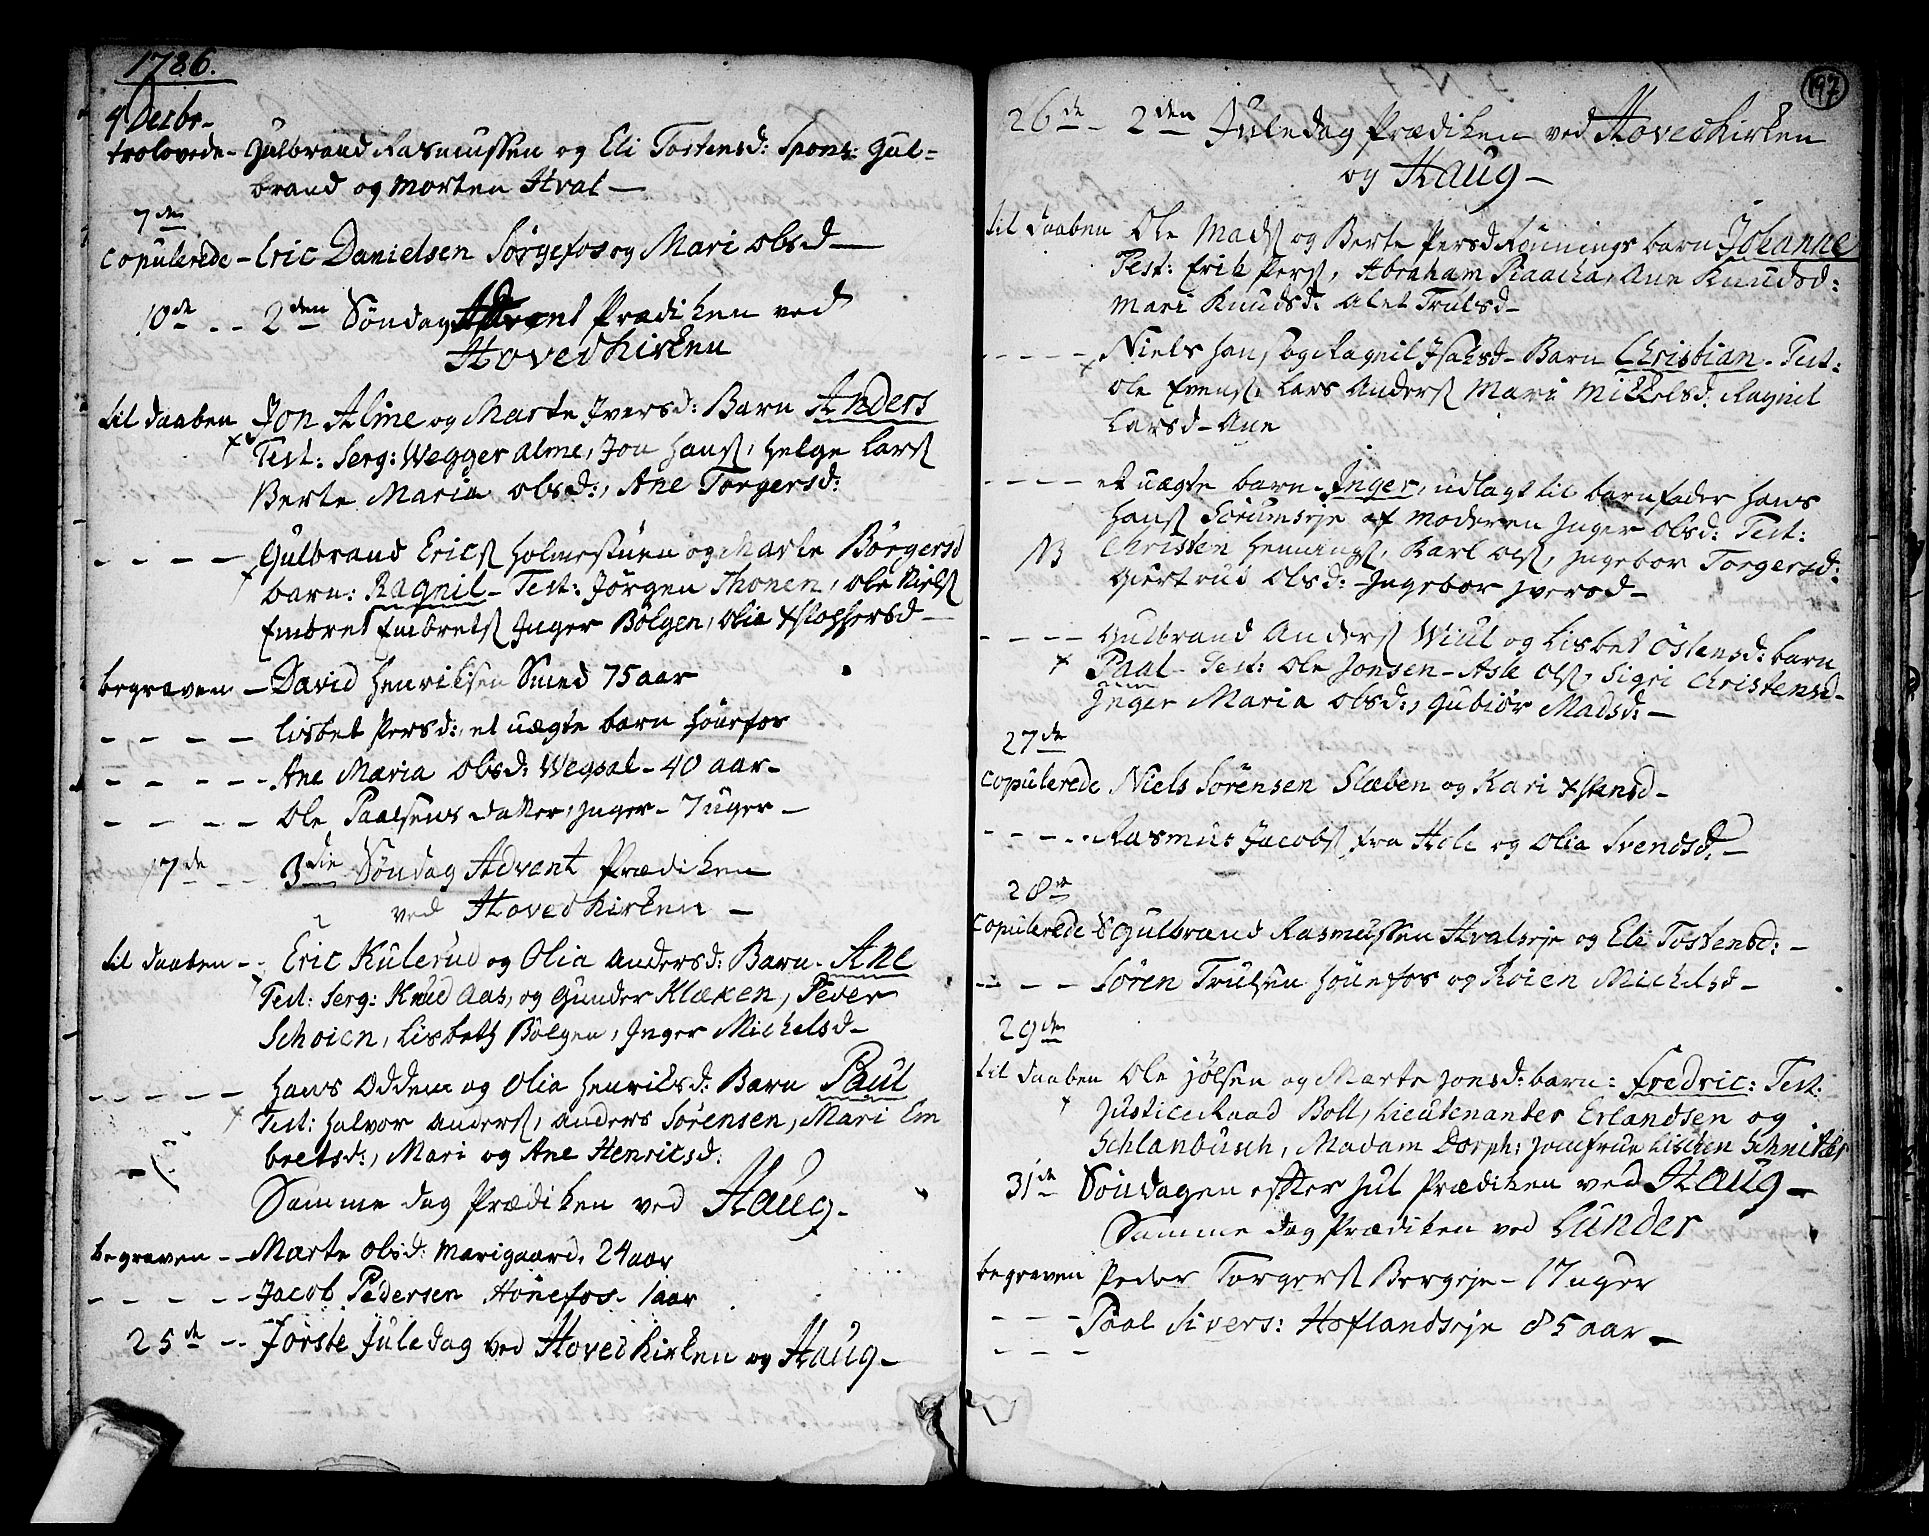 1786.
9 Decbr-
trolovede - Gulbrand Rasmussen og Eli Tostensd: Spons: Gul-
brand og Morten Hval -
7den
copulerede - Eric Danielsen Sørgefos og Mari Olsd -
10de - - 2den Søndag Advent Prædiken ved
Hovedkirken
til daaben Jon Alme og Marte Iversd: Barn Anders
Test: Serg: Wegger Alme, Jon Hans, Helge Lars
Berte Maria Olsd:, Ane Torgersd:
- - - - Gulbrand Erics Holmestuen og Marte Børgersd
barn: Ragnil - Test: Jørgen Thonen, Ole Niels
Embret Embrets Inger Bølgen, Olia Xstophersd -
begraven - David Henriksen Smed 75 aar
- - - - Lisbet Persd:, et uægte barn Hønefos
- - - - - Ane Maria Olsd: Wegsal - 40 aar -
- - - - Ole Paalsens datter, Inger - 7 uger -
17de - - 3die Søndag Advent Prædiken
ved Hovedkirken -
til daaben - - Eric Kulerud og Olia Andersd: Barn - Ane
Test: Serg: Knud Aas, og Gunder Klæken, Peder
Schoien, Lisbeth Bølgen, Inger Michelsd -
- - - - - Hans Oddem og Olia Henriksd: Barn Paul
Test: Halvor Anders, Anders Sørensen, Mari Em
bretsd:, Mari og Ane Henricsd:
Samme dag Prædiken ved Haug -
begraven - Marte Olsd: Marigaard, 24 aar
- - - - - Jacob Pedersen Hønefos - 1 aar
25de - - Første Juledag ved Hovedkirken og Haug -
197
26de - 2den Juledag Prædiken ved Hovedkirken
og Haug -
til daaben Ole Mads og Berte Persd Rønnings barn Johanne
Test: Erik Pers, Abraham Piaacka, Ane Knudsd:
Mari Knudsd: Alet Trulsd -
- - - - Niels Hans og Ragnil Isaksd - Barn Christian - Test:
Ole Evens, Lars Anders Mari Mikkelsd: Ragnil
Larsd - Ane
- - - - et uægte barn - Inger, udlagt til barnfader Hans
Hans Sørumseje af Moderen Inger Olsd: Test:
NB Christen Hennings, Karl Ols, Ingebor Torgersd:
Giertrud Olsd: Ingebor Iversd -
- - - - Gulbrand Anders Wiul og Lisbet Østensd: barn
Paal - Test: Ole Jonsen - Asle Ols, Sigri Christensd -
Inger Maria Olsd:, Gubiør Madsd: -
27de
copulerede Niels Sørensen Slæben og Kari Xstensd -
- - - - Rasmus Jacobs fra Hole og Olia Svendsd: -
28de
copulerede Gulbrand Rasmussen Hvalseje og Eli Tostensd: -
- - - Søren Trulsen Hønefos og Roien Michelsd -
29de
til daaben Ole Jølsen og Marte Jonsd: barn: Fredric: Test:
Justice Raad Boll, Lieutenanter Erlandsen og
Schlanbusch, Madam Dorph: Jomfrue Lischen Schnitler
31de Søndagen efter Jul Prædiken ved Haug -
Samme dag Prædiken ved Lunder
begraven Peder Torgers Bergeje - 17 uger
- - - Paal Sivers: Hoflandseje 85 aar -
- - -